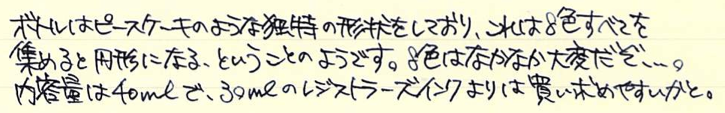 ボトルはピースケーキのような独特の形状をしており、これは8色すべてを
集めると円形になる、ということのようです。8色はなかなか大変だぞ…。
内容量は40mlで、30mlのレジストラーズインクよりは買い求めやすいかと。